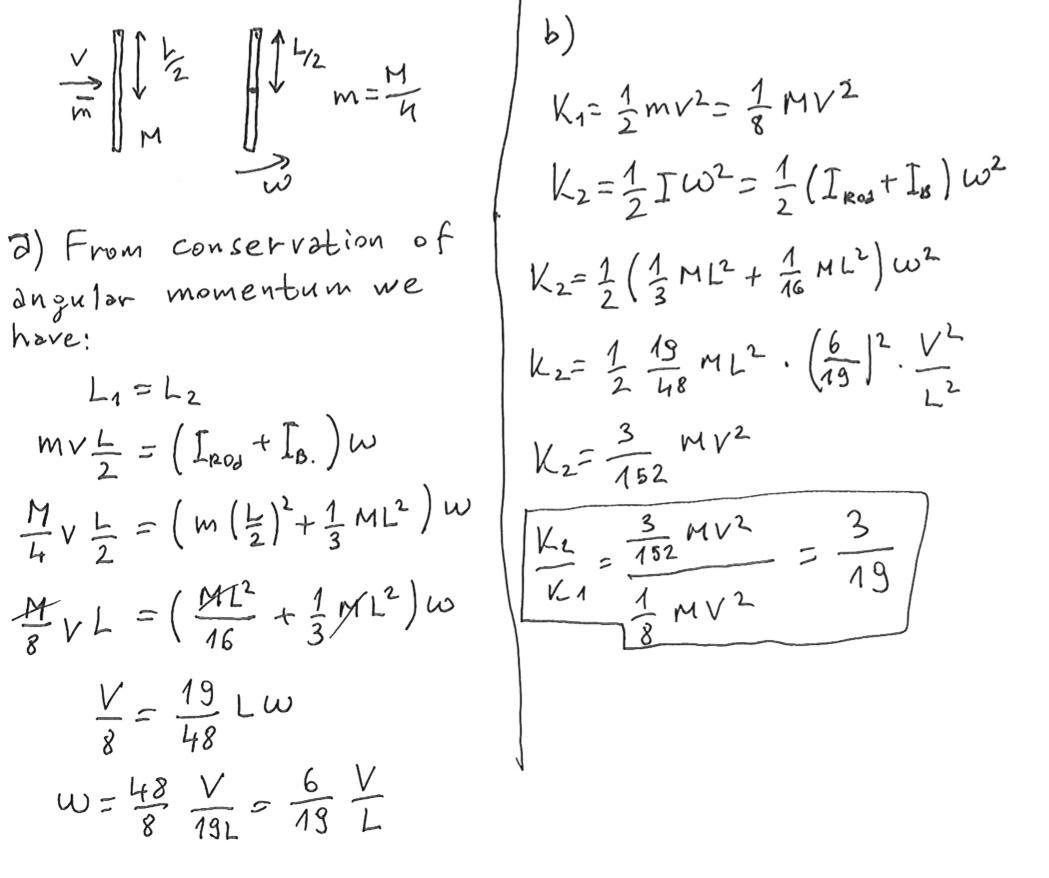 V
m
L/2
M
L/2
m = M/4
ω
a) From conservation of
angular momentum we
have:
L₁ = L₂
mv L/2 = (I_Rod + I_B.) ω
M/4 v L/2 = (m (L/2)² + 1/3 ML²) ω
M/8 v L = (ML²/16 + 1/3 ML²) ω
V/8 = 19/48 L ω
ω = 48/8 V/19L = 6/19 V/L
b)
K₁ = 1/2 mv² = 1/8 MV²
K₂ = 1/2 I ω² = 1/2 (I_Rod + I_B) ω²
K₂ = 1/2 (1/3 ML² + 1/16 ML²) ω²
K₂ = 1/2 19/48 ML² · (6/19)² · V²/L²
K₂ = 3/152 MV²
K₂/K₁ = (3/152 MV²)/(1/8 MV²) = 3/19